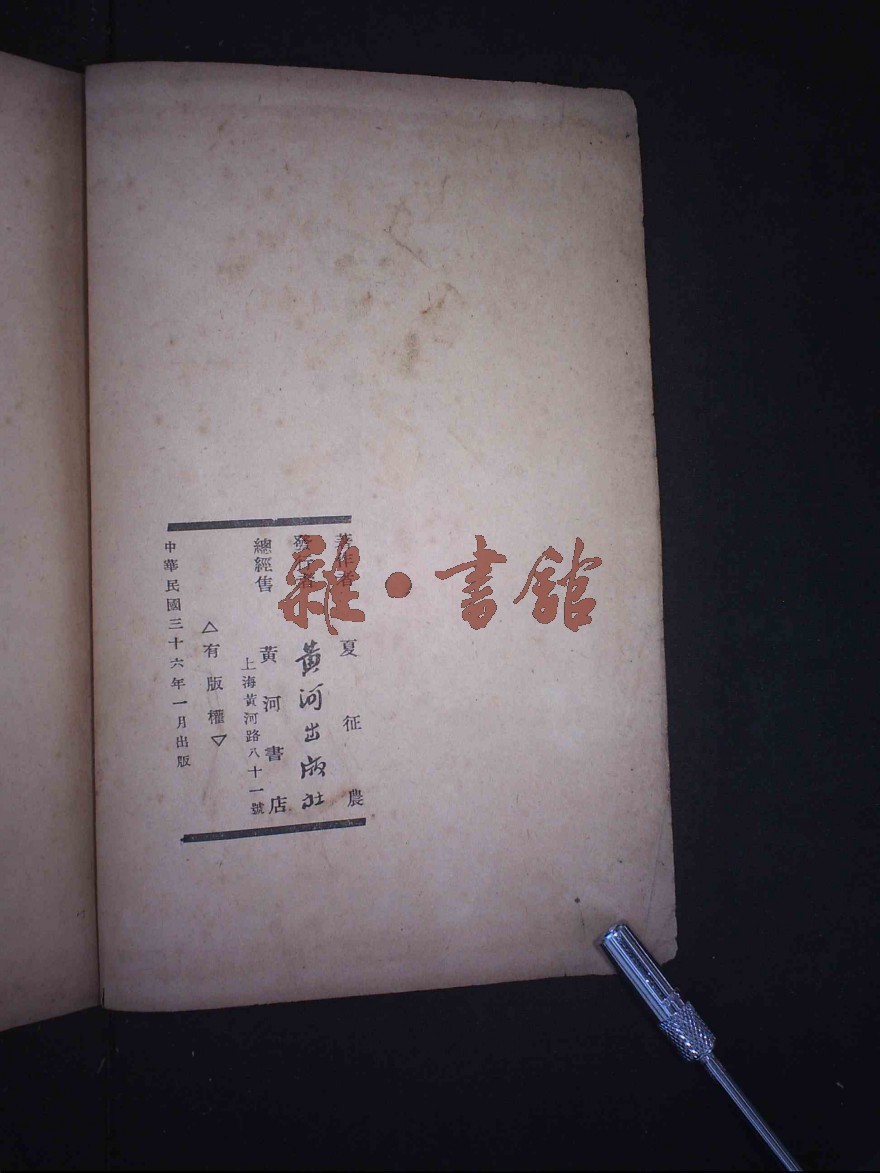 著作者 夏征農
發行者 黃河出版社
總經售 黃河書店
上海黃河路八十一號
△有版權▽
中華民國三十六年一月出版
雜·書館